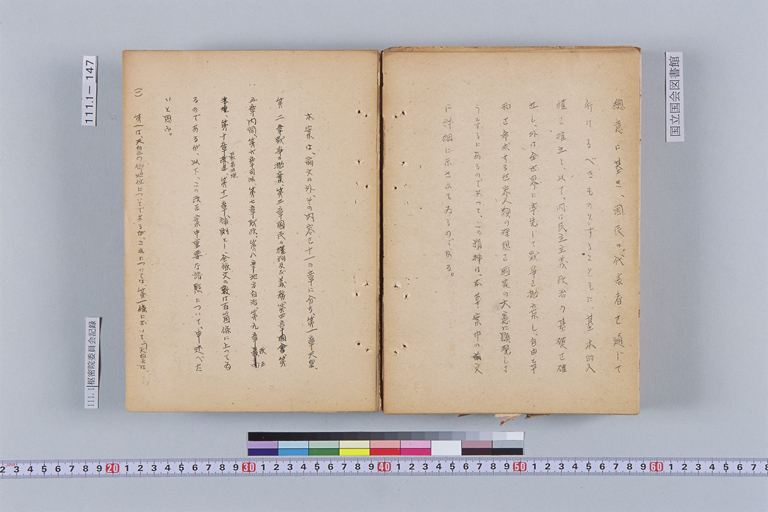 総意に基き、国民は、代表者を通じて
行はるべきものとすることともに、基本的人
権を確立し、以て、内は民主主義政治の基礎を確
立し、外は全世界に率先して戦争を抛棄し、自由と平
和を希求する世界人類の理想を国家の大憲に顕現しよ
うとするにあるのであつて、この精神は、本草案中の前文
に詳細に示されてゐるのである。
本案は、前文の外、その内容を十一の章に分ち、第一章天皇、
第二章戦争の抛棄、第三章国民の権利及び義務、第四章国会、第
五章内閣、第六章司法、第七章財政、第八章地方自治、第九章改正
第十章最高法規、第十一章補則とし、全條文の数は百箇條に上つてゐ
るのであるが、以下、この改正案中重要な諸点について、申述べた
いと思ふ。
(一) 第一は、天皇の御地位についてであるが、これについては、第一條において、
国立国会図書館
111.1-147
111.1 枢密院委員会記録
2 3 4 5 6 7 8 9 20 1 2 3 4 5 6 7 8 9 30 1 2 3 4 5 6 7 8 9 40 1 2 3 4 5 6 7 8 9 50 1 2 3 4 5 6 7 8 9 60 1 2 3 4 5 6 7 8